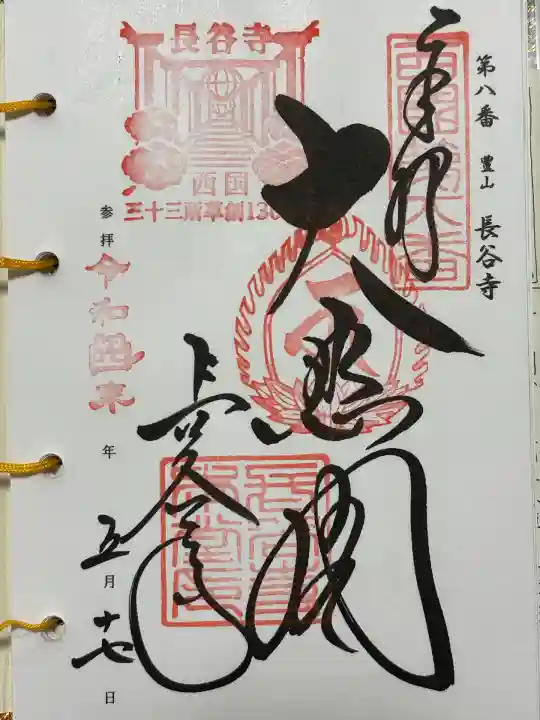 第八番 豊山 長谷寺
奉拝
西国第八番
大悲閣
長谷寺
西国
三十三所草創130
長谷寺
参拝 令和四年 年 五月 十七日